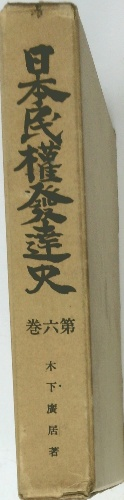 日本民權發達史
第六巻
木下廣居著